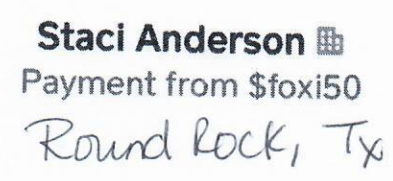 Staci Anderson
Payment from $foxi50
Round Rock, Tx